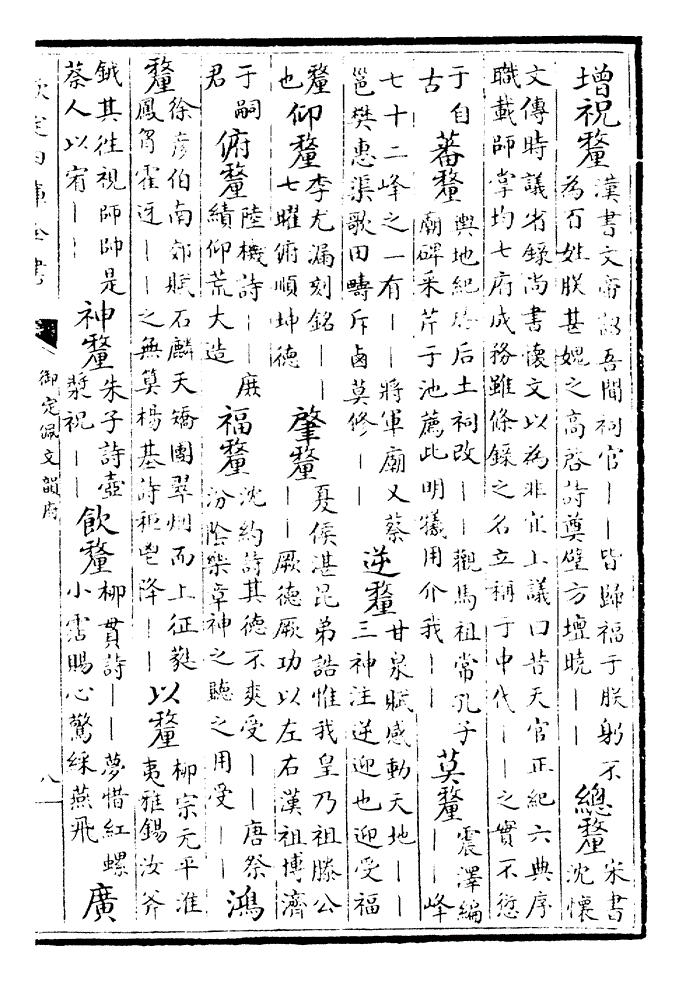 增祝釐 漢書文帝詔吾聞祠官——皆歸福于朕躬不為百姓朕甚媿之高啓詩奠璧方壇曉—— 總釐 宋書沈懷
文傳時議省錄尚書懷文以為非宜上議曰昔天官正紀六典序職載師掌均七府成務雖條錄之名立稱于中代——之實不愆
于自古 蕃釐 輿地紀勝后土祠改——觀馬祖常孔子廟碑采芹于池薦此明犧用介我—— 莫釐 震澤編——峰
七十二峰之一有——將軍廟又蔡邕樊惠渠歌田疇斥鹵莫修—— 逆釐 甘泉賦感動天地——三神注逆迎也迎受福
釐也 仰釐 李尤漏刻銘——七曜俯順坤德 肇釐 夏侯湛昆弟誥惟我皇乃祖滕公——厥德厥功以左右漢祖博濟
于嗣君 俯釐 陸機詩——庶績仰荒大造 福釐 沈約詩其德不爽受——唐祭汾陰樂章神之聽之用受—— 鴻
釐 徐彥伯南郊賦石麟天矯團翠烟而上征蕤鳳肸霍迓——之無筭楊基詩秬鬯降—— 以釐 柳宗元平淮夷雅錫汝斧
鉞其往視師師是蔡人以宥—— 神釐 朱子詩壺漿祝—— 飲釐 柳貫詩——夢惜紅螺小霑賜心驚綵燕飛 廣
欽定四庫全書
御定佩文韻府
八